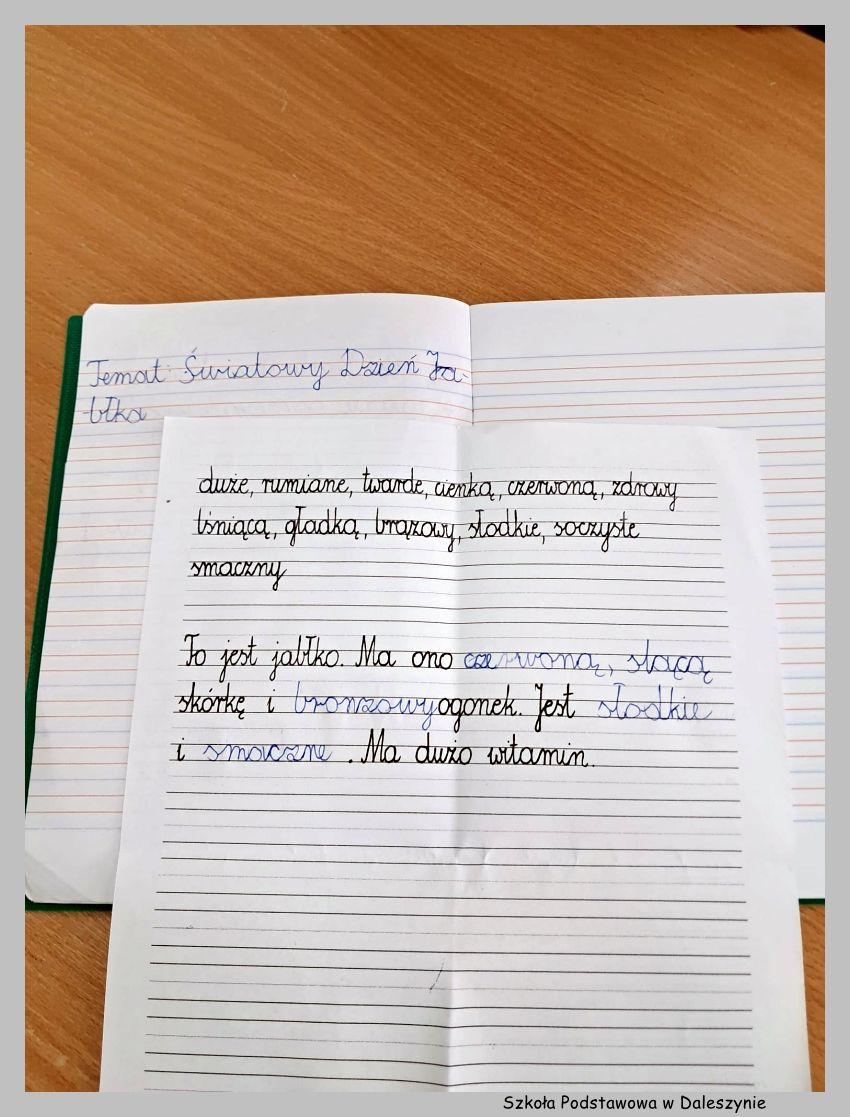 Temat: Światowy Dzień Ja-
błka
duże, rumiane, twarde, cienką, czerwoną, zdrowy
lśniącą, gładką, brązowy, słodkie, soczyste
smaczny
To jest jabłko. Ma ono czerwoną, słącą
skórkę i bronzowy ogonek. Jest słodkie
i smaczne. Ma dużo witamin.
Szkoła Podstawowa w Daleszynie